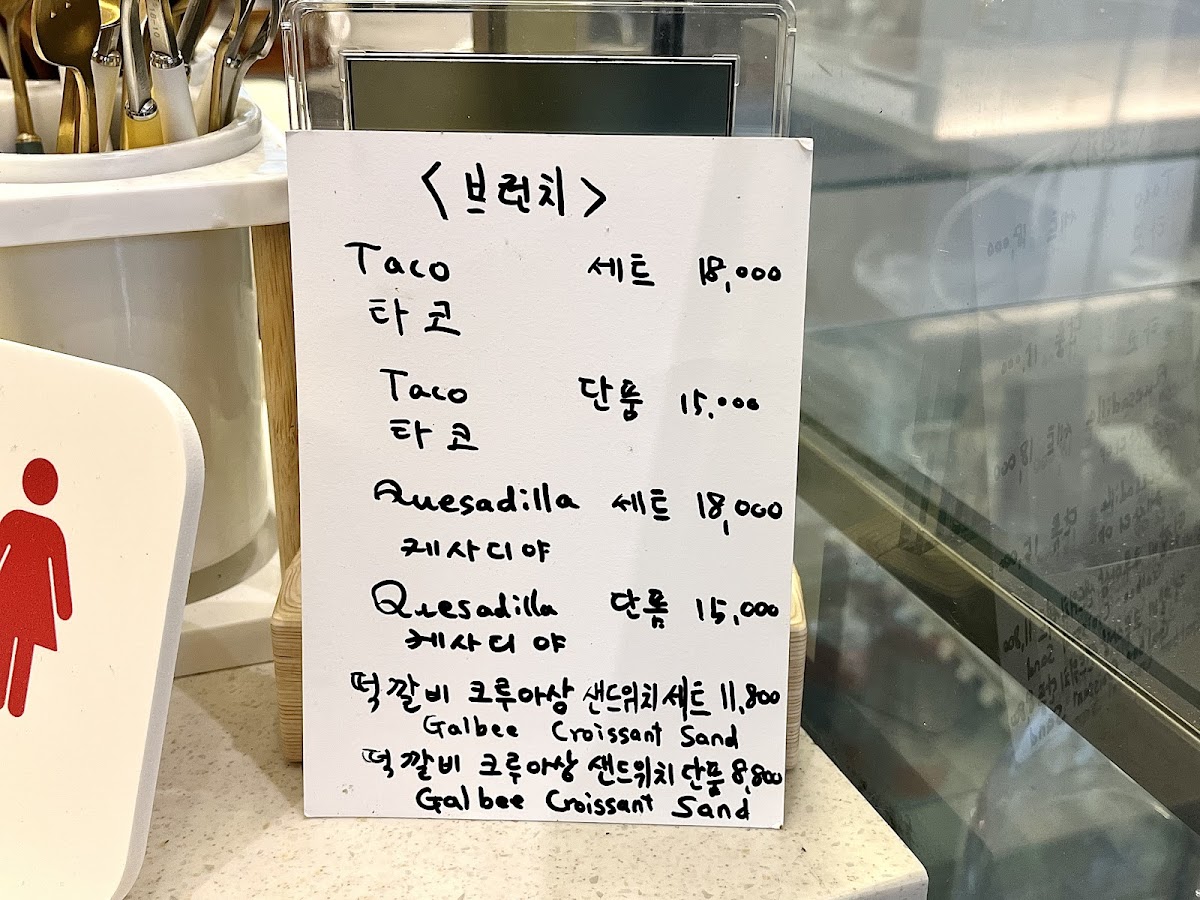 <브런치>
Taco 세트 18,000
타코
Taco 단품 15,000
타코
Quesadilla 세트 18,000
케사디야
Quesadilla 단품 15,000
케사디야
떡갈비 크루아상 샌드위치 세트 11,800
Galbee Croissant Sand
떡갈비 크루아상 샌드위치 단품 8,800
Galbee Croissant Sand